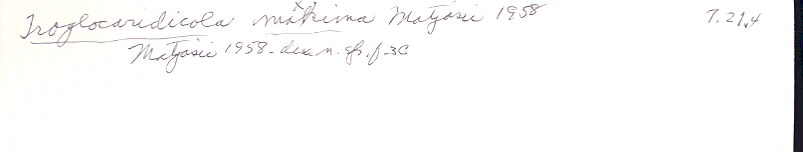 Troglocaridicola makima Matjasic 1958 7.21.4
x
Matjasic 1958 - des n. sp. f-3C